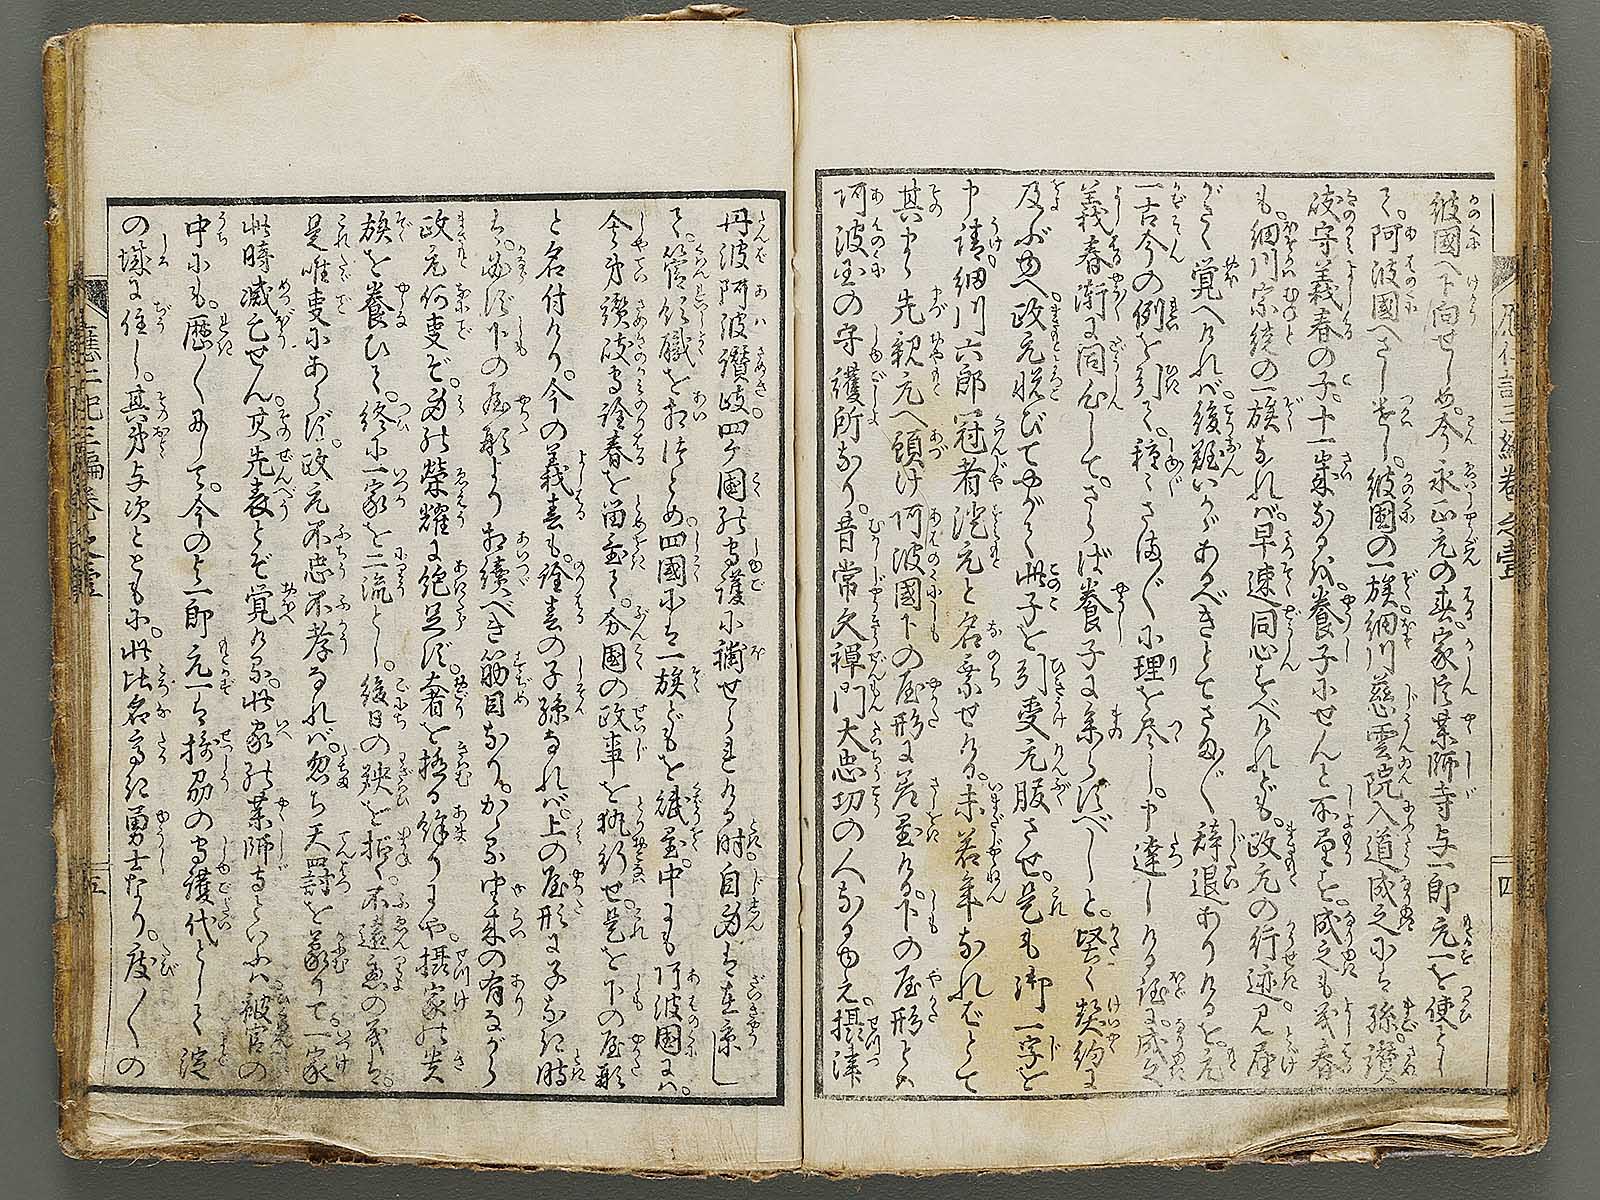 彼國へ下向せしめ。今永正元の春。家臣薬師寺与一郎元一を使として。
阿波國へさし遣し。彼国の一族細川慈雲院入道成之には孫。讃
岐守義春の子。十一才なるハ養子にせんと所望を。成之も義春
も。細川宗統の一族なれバ。早速同心すべけれども。政元の行迹見届
がたく覚へけれバ。後難いかゞあるべきとてさま〴〵辞退ありけるを。元
一古今の例を引て。種々さま〴〵に理を尽し。申達しける故。成之
義春漸に同心して。さらば養子に参らすべしと。堅く契約に
及ぶゆへ政元悦びてやがて此子を引受元服させ。是も御一字を
申請細川六郎冠者澄元と名乗せける。未若年なれどとて
其中ゟ先親元へ預け阿波國下の屋形に差置ける。下の屋形とハ
阿波国の守護所なり。昔常久禅門大忠切の人なるゆえ。摂津
丹波阿波讃岐四ケ國の守護に補せられける時。自身は在京し
て。管領職を相つとめ四國には一族どもを賦置。中にも阿波國にハ。
舎弟讃岐守詮春を留置て。分國の政事を執行せ。是を下の屋形
と名付けり。今の義春も。詮春の子孫なれバ。上の屋形に子なき時
は。必ず下の屋形より相続べき筋目なり。かゝる由来の有ながら
政元何事ぞ。身の榮耀に絶足ず。奢を極る餘りにや。摂家の貴
族を養ひて。終に一家を二流とし。後日の殃を招く。不遠慮の義は。
是唯事にあらず。政元不忠不孝なれバ。忽ち天罰を蒙りて一家
此時滅亡せん。其先表とぞ覚ける。此家の薬師寺といふハ被官の
中にも。歴々にして。今の与一郎元一は摂州の守護代として淀
の城に住し。其弟与次とともに。此比名高き勇士なり。度々の
應仁記三編巻之壹
四
應仁記三編巻之壹
五